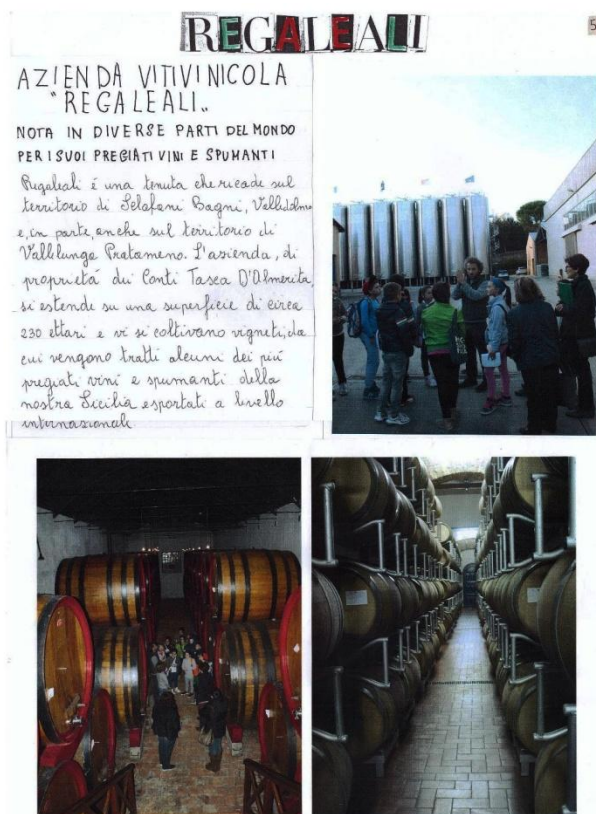 REGALEALI
5
AZIENDA VITIVINICOLA
"REGALEALI"
NOTA IN DIVERSE PARTI DEL MONDO
PER I SUOI PREGIATI VINI E SPUMANTI
Regaleali é una tenuta che ricade sul
territorio di Sclafani Bagni, Valledolmo
e, in parte, anche sul territorio di
Vallelunga Pratameno. L'azienda, di
proprietá dei Conti Tasca D'Almerita,
si estende su una superficie di circa
230 ettari e vi si coltivano vigneti, da
cui vengono tratti alcuni dei piú
pregiati vini e spumanti della
nostra Sicilia esportati a livello
internazionale.